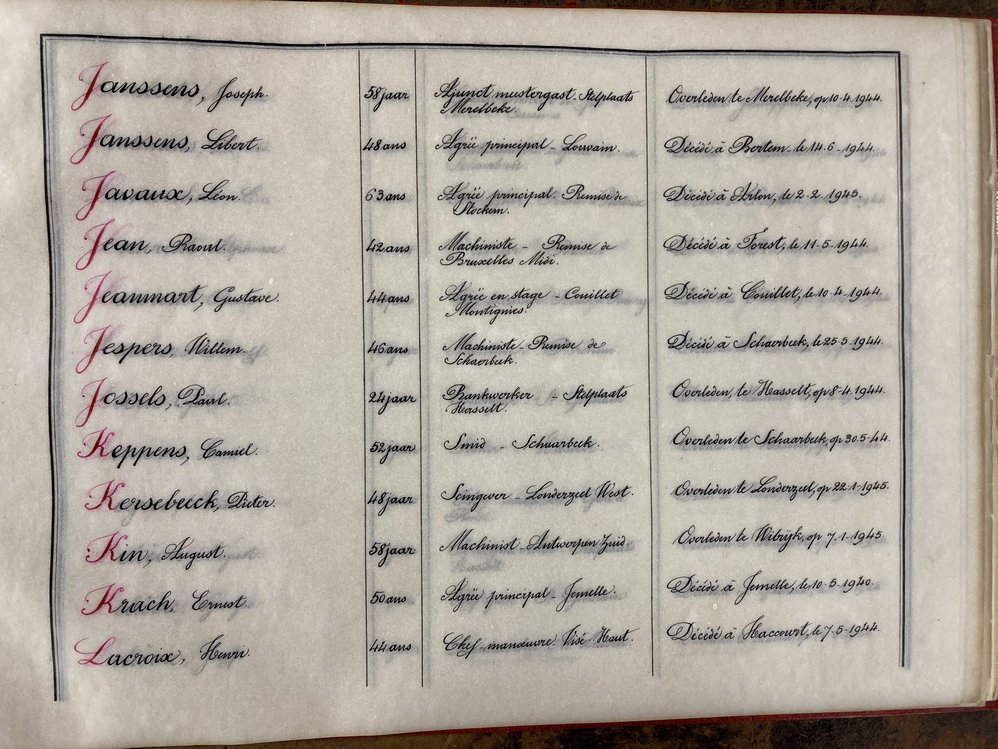 Janssens, Joseph. 58 jaar Adjunct meestergast - Stelplaats Overleden te Merelbeke, op 10-4-1944.
Merelbeke.
Janssens, Libert. 48 ans Agréé principal - Louvain. Décédé à Bertem - le 14-6-1944.
Javaux, Léon. 63 ans Agréé principal. Remise de Décédé à Arlon, le 2-2-1945.
Stockem.
Jean, Raoul. 42 ans Machiniste - Remise de Décédé à Forest, le 11-5-1944.
Bruxelles Midi.
Jeanmart, Gustave. 44 ans Agréé en stage - Couillet Décédé à Couillet, le 10-4-1944.
Montignies.
Jespers, Willem. 46 ans Machiniste - Remise de Décédé à Schaerbeek, le 25-5-1944.
Schaerbeek.
Jossels, Paul. 24 jaar Bankwerker - Stelplaats Overleden, te Hasselt, op 8-4-1944.
Hasselt.
Keppens, Camiel. 52 jaar Smid - Schaarbeek. Overleden te Schaarbeek, op 30.5-44.
Kersebeeck, Pieter. 48 jaar Seingever - Londerzeel West. Overleden te Londerzeel, op 22-1-1945.
Kin, August. 58 jaar Machinist - Antwerpen Zuid. Overleden te Wilrijk, op 7-1-1945
Krach, Ernest. 50 ans Agréé principal - Jemelle. Décédé à Jemelle, le 10-5-1940.
Lacroix, Henri. 44 ans Chef-manœuvre Visé Haut. Décédé à Haccourt, le 7.5-1944.